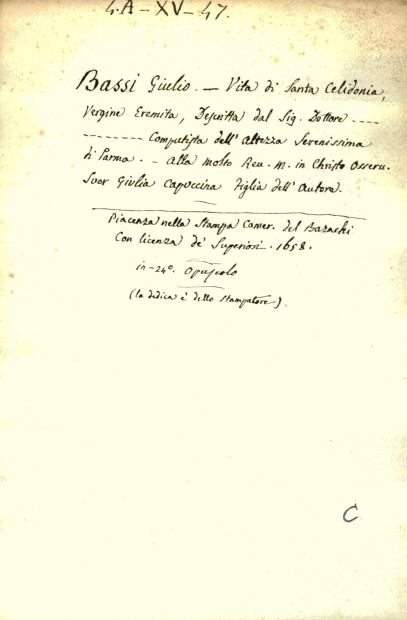 4.A-XV-47.
Bassi Giulio. — Vita di Santa Celidonia,
Vergine Eremita, Descritta dal Sig. Dottore ----
--------- Computista dell' Altezza Serenissima
di Parma. - alla molto Reu. M. in Christo Osseru.
Suor Giulia Capuccina Figlia dell' Autore.
Piacenza nella Stampa Camer. del Bazachi
Con licenza de' Superiori. 1658.
in-24º. Opuscolo
(la dedica è dello Stampatore)
C